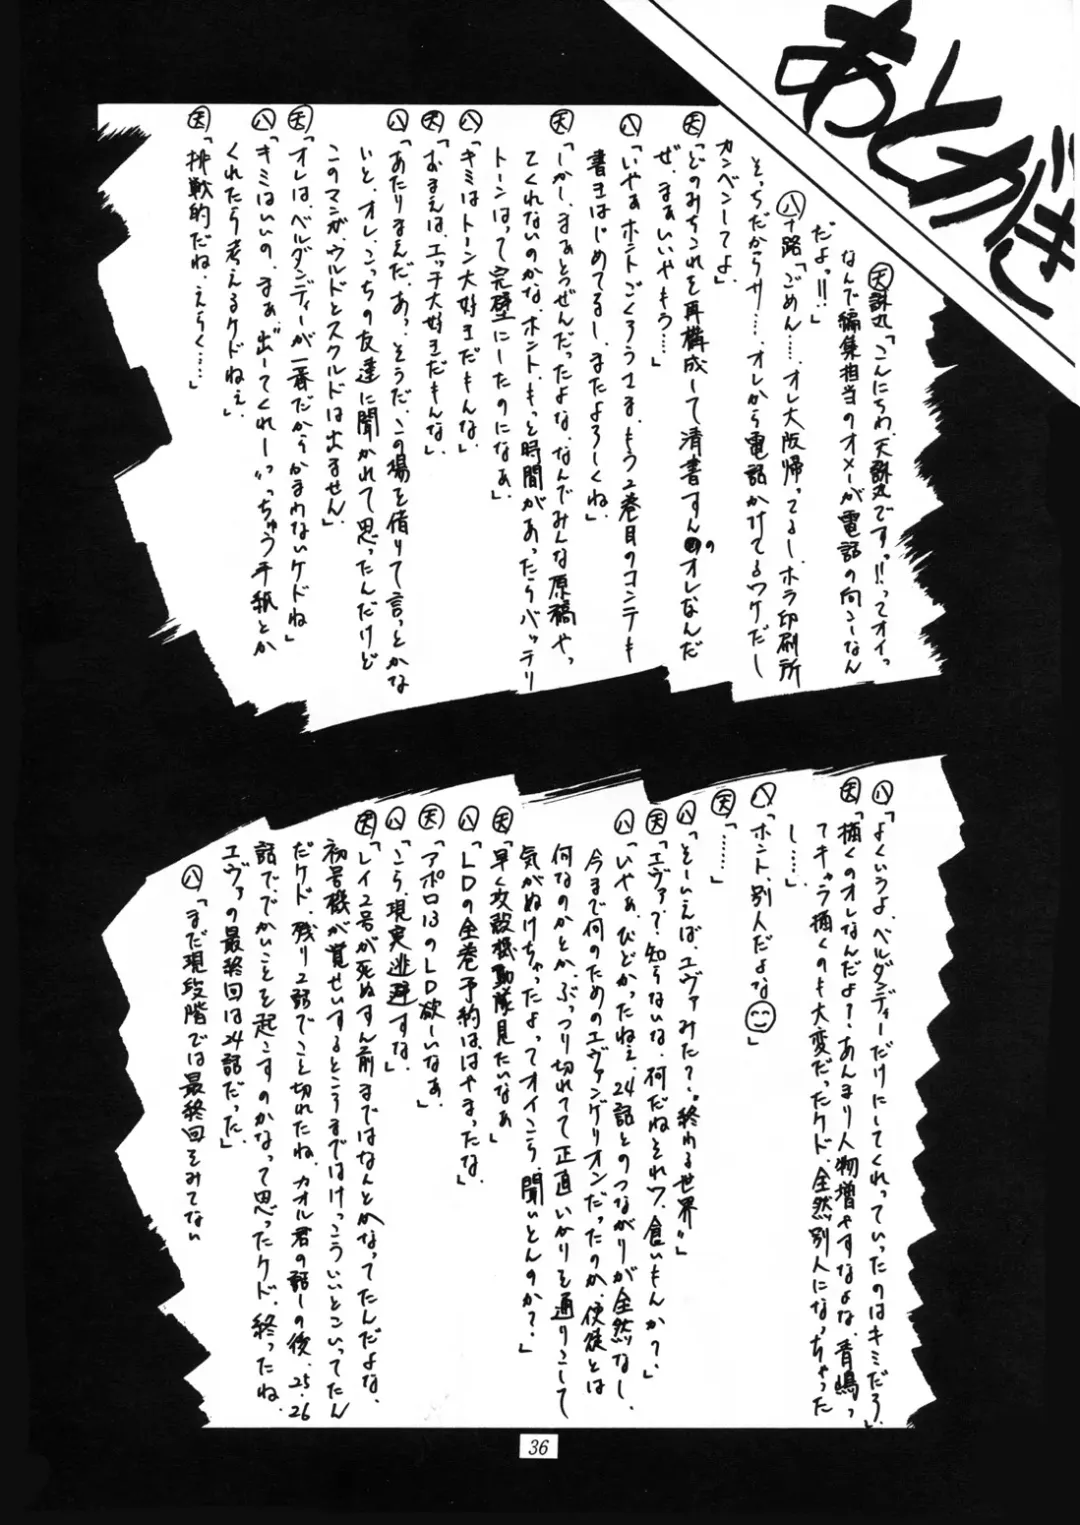 あとがき
㊝誅丸「こんにちわ、天誅丸ですっ!!ってオイっ
なんで編集担当のオメーが電話の向こーなん
だよっ!!」
㊇十路「ごめん……、オレ大阪帰ってるし、ホラ印刷所
そっちだからサ……、オレから電話かけてるワケだし
カンベンしてよ」
㊝「どのみちこれを再構成して清書すんのオレなんだ
ぜ、まぁいいやもう…」
㊇「いやぁホントごくろうさま、もう2巻目のコンテも
書きはじめてるし、またよろしくね」
㊝「しかし、まぁとつぜんだったよな、なんでみんな原稿やっ
てくれないのかな、ホント、もっと時間があったらバッチリ
トーンはって完璧にしたのになぁ」
㊇「キミはトーン大好きだもんな」
㊝「おまえは、エッチ大好きだもんな」
㊇「あたりまえだ、あっ、そうだ、この場を借りて言っとかな
いと、オレ、こっちの友達に聞かれて思ったんだけど
このマンガ、ウルドとスクルドは出ません」
㊝「オレは、ベルダンディーが一番だからかまわないケドね」
㊇「キミはいいの、まぁ〝出してくれー〟っちゅう手紙とか
くれたら考えるケドねぇ」
㊝「挑戦的だね、えらく……」
㊇「よくいうよ、ベルダンディーだけにしてくれっていったのはキミだろ」
㊝「描くのオレなんだよ?、あんまり人物増やすなよな、青嶋っ
てキャラ描くのも大変だったケド、全然別人になっちゃった
し……」
㊇「ホント、別人だよな」
㊝「……」
㊇「そーいえば、エヴァみた?〝終わる世界〟」
㊝「エヴァ?知らないな、何だねそれワ、食いもんか?」
㊇「いやぁ、ひどかったねぇ、24話とのつながりが全然なし、
今まで何のためのエヴァンゲリオンだったのか、使徒とは
何なのかとか、ぶっつり切れてて正直いかりを通りこして
気がぬけちゃったよってオイこら、聞いとんのか?」
㊝「早く攻殻機動隊見たいなぁ」
㊇「LDの全巻予約ははやまったな」
㊝「アポロ13のLD欲しいなぁ」
㊇「こら、現実逃避すな」
㊝「レイ2号が死ぬすん前まではなんとかなってたんだよな、
初号機が覚せいするところまではけっこういいとこいってたん
だケド、残り2話でこと切れたね、カオル君の話しの後、25・26
話ででかいことを起こすのかなって思ったケド、終ったね、
エヴァの最終回は24話だった」
㊇「まだ現段階では最終回をみてない
36